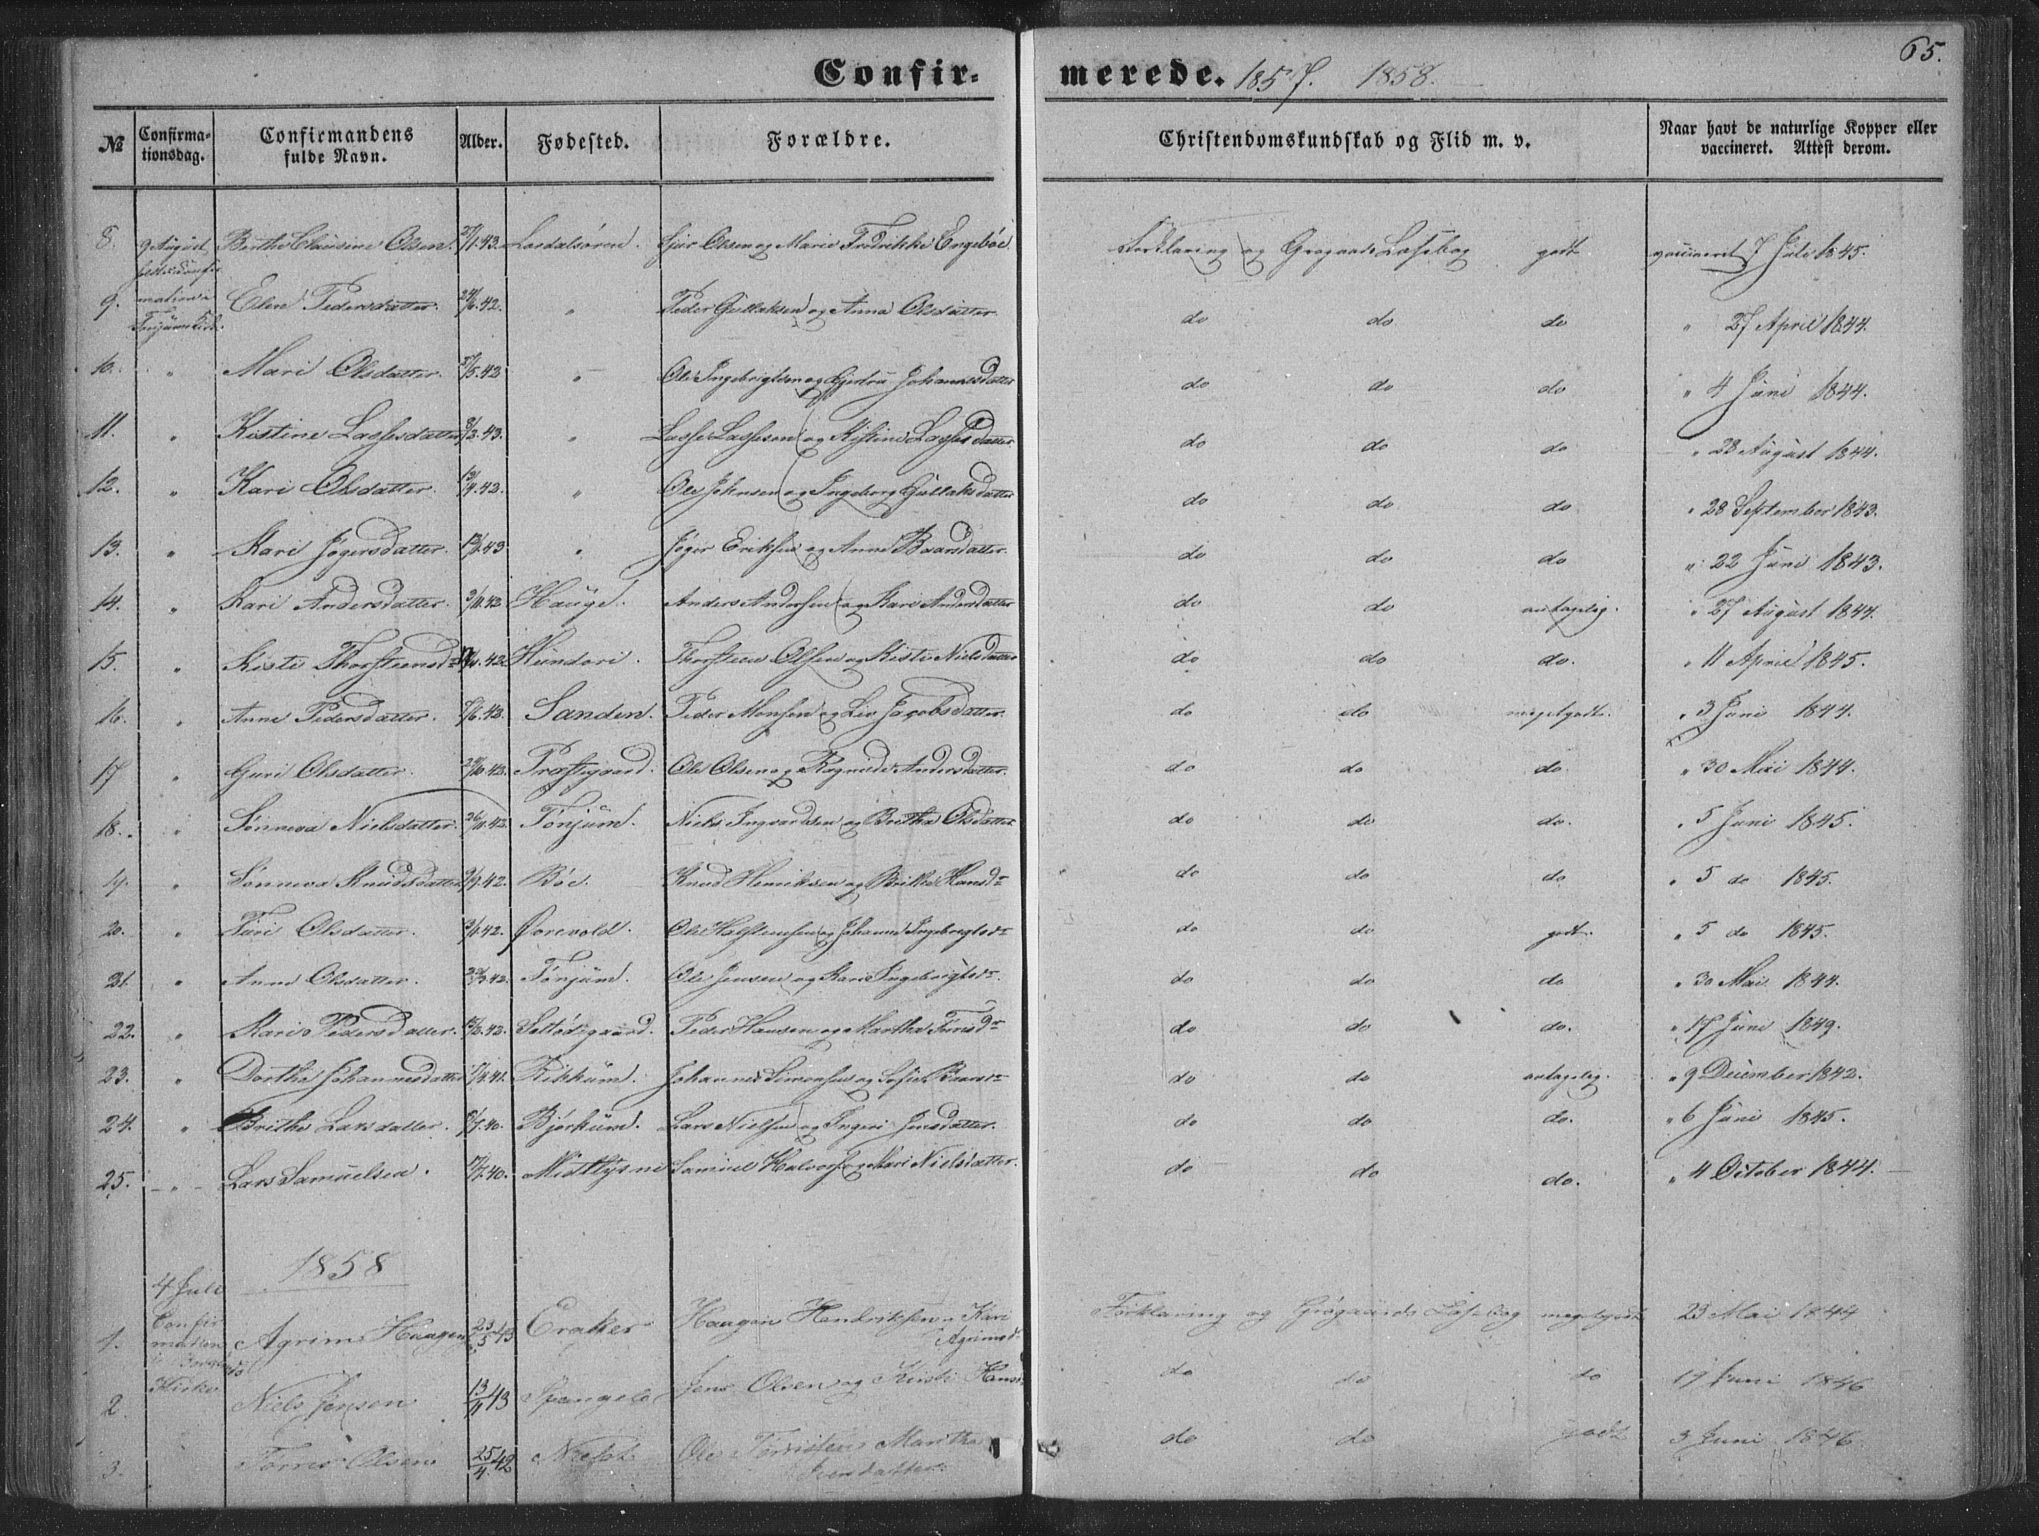 65.
Confirmerede. 1857. 1858.
№ Confirmationsdag. Confirmandens fulde Navn. Alder. Fødested. Forældre. Christendomskundskab og Flid m. v. Naar havt de naturlige Kopper eller vaccineret. Attest derom.
8. 9 August Berthe Olsen. Olsen og Marie Fredrikke Engebøe Forklaring og Grogaards Læsebog godt vaccineret 7 Juli 1845.
9. Tønjum Kirke. Elen Pedersdatter. 24/6.42. " Peder Gullaksen og Anna Olsdatter do do do " 27 April 1844.
10. " Mari Olsdatter. " Ole Ingebrigtsen og Gjertru Johannesdatter do do do " 4 Juni 1844.
11. " Kistine Lassesdatter " Lasse Lassesen og Kistine Lassesdatter do do do " 28 August 1844.
12. " Kari Olsdatter. " Ole Johnsen og Ingeborg Gullaksdatter do do do " 28 September 1843.
13. " Kari Jøgersdatter. " Jøger Eriksen og Anne Baardsdatter. do do do " 22 Juni 1843.
14. " Kari Andersdatter. 3/11.42 Hauge. Anders Andersen og Kari Andersdatter do do antagelig. " 27 August 1844.
15. " Kisti Thorsteensdr Hunderi. Thorsteen Olsen og Kisti Nielsdatter do do do. " 11 April 1845.
16. " Anne Pedersdatter. Sanden. Peder Monsen og Liv Jacobsdatter. do do megetgodt. " 3 Juni 1844.
17 " Guri Olsdatter. Præstegaard. Ole Olsen og Ragnilde Andersdatter. do do do. " 30 Mai 1844.
18. " Sønneva Nielsdatter. 26/11.42. Tønjum. Niels Ingvardsen og Bertha Olsdatter do do do. " 5 Juni 1845.
19. " Sønneva Knudsdatter 9/9.42. Bøe. Knud Henriksen og Brithe Hansdr do do do " 5 do 1845.
20. " Turi Olsdatter. Ørevold. Ole Halsteensen og Johanne Ingebrigtsdr do do godt. " 5 do 1845.
21. " Anne Olsdatter. Tønjum. Ole Jensen og Kari Ingebrigtsdr. do do do " 30 Mai 1844.
22. " Karis Pedersdatter. Peder Hansen og Martha do do do. " 17 Juni 1849.
23. " Dorthe Johannesdatter Rikkum. Johannes Simonsen og Sofie do do antagelig. " 9 December 1842.
24. " Brithe Larsdatter. Bjørkum. Lars Nielsen og Ingeri Jensdatter. do do do. " 6 Juni 1845.
25. " Lars Samuelsen. Midtlysne Samuel Halvorsen og Mari Nielsdatter. do do do. " 11 October 1844.
1858
4 Juli
1. Confirmation i Borgunds Kirke Agrim Haagen 23/5 43 Eraker Haagen Hendriksen og Kari Agrimsd. Forklaring og Grøgaards Læsebog megetgodt 23 Mai 1844
2 Niels Jensen 13/11 43 Spangelo Jens Olsen og Kirsti Hansd do do do 19 Juni 1846
3. Torres Olsen 25/11 42 Næset Ole Torristen Martha Iversdatter do do godt 3 Juni 1846